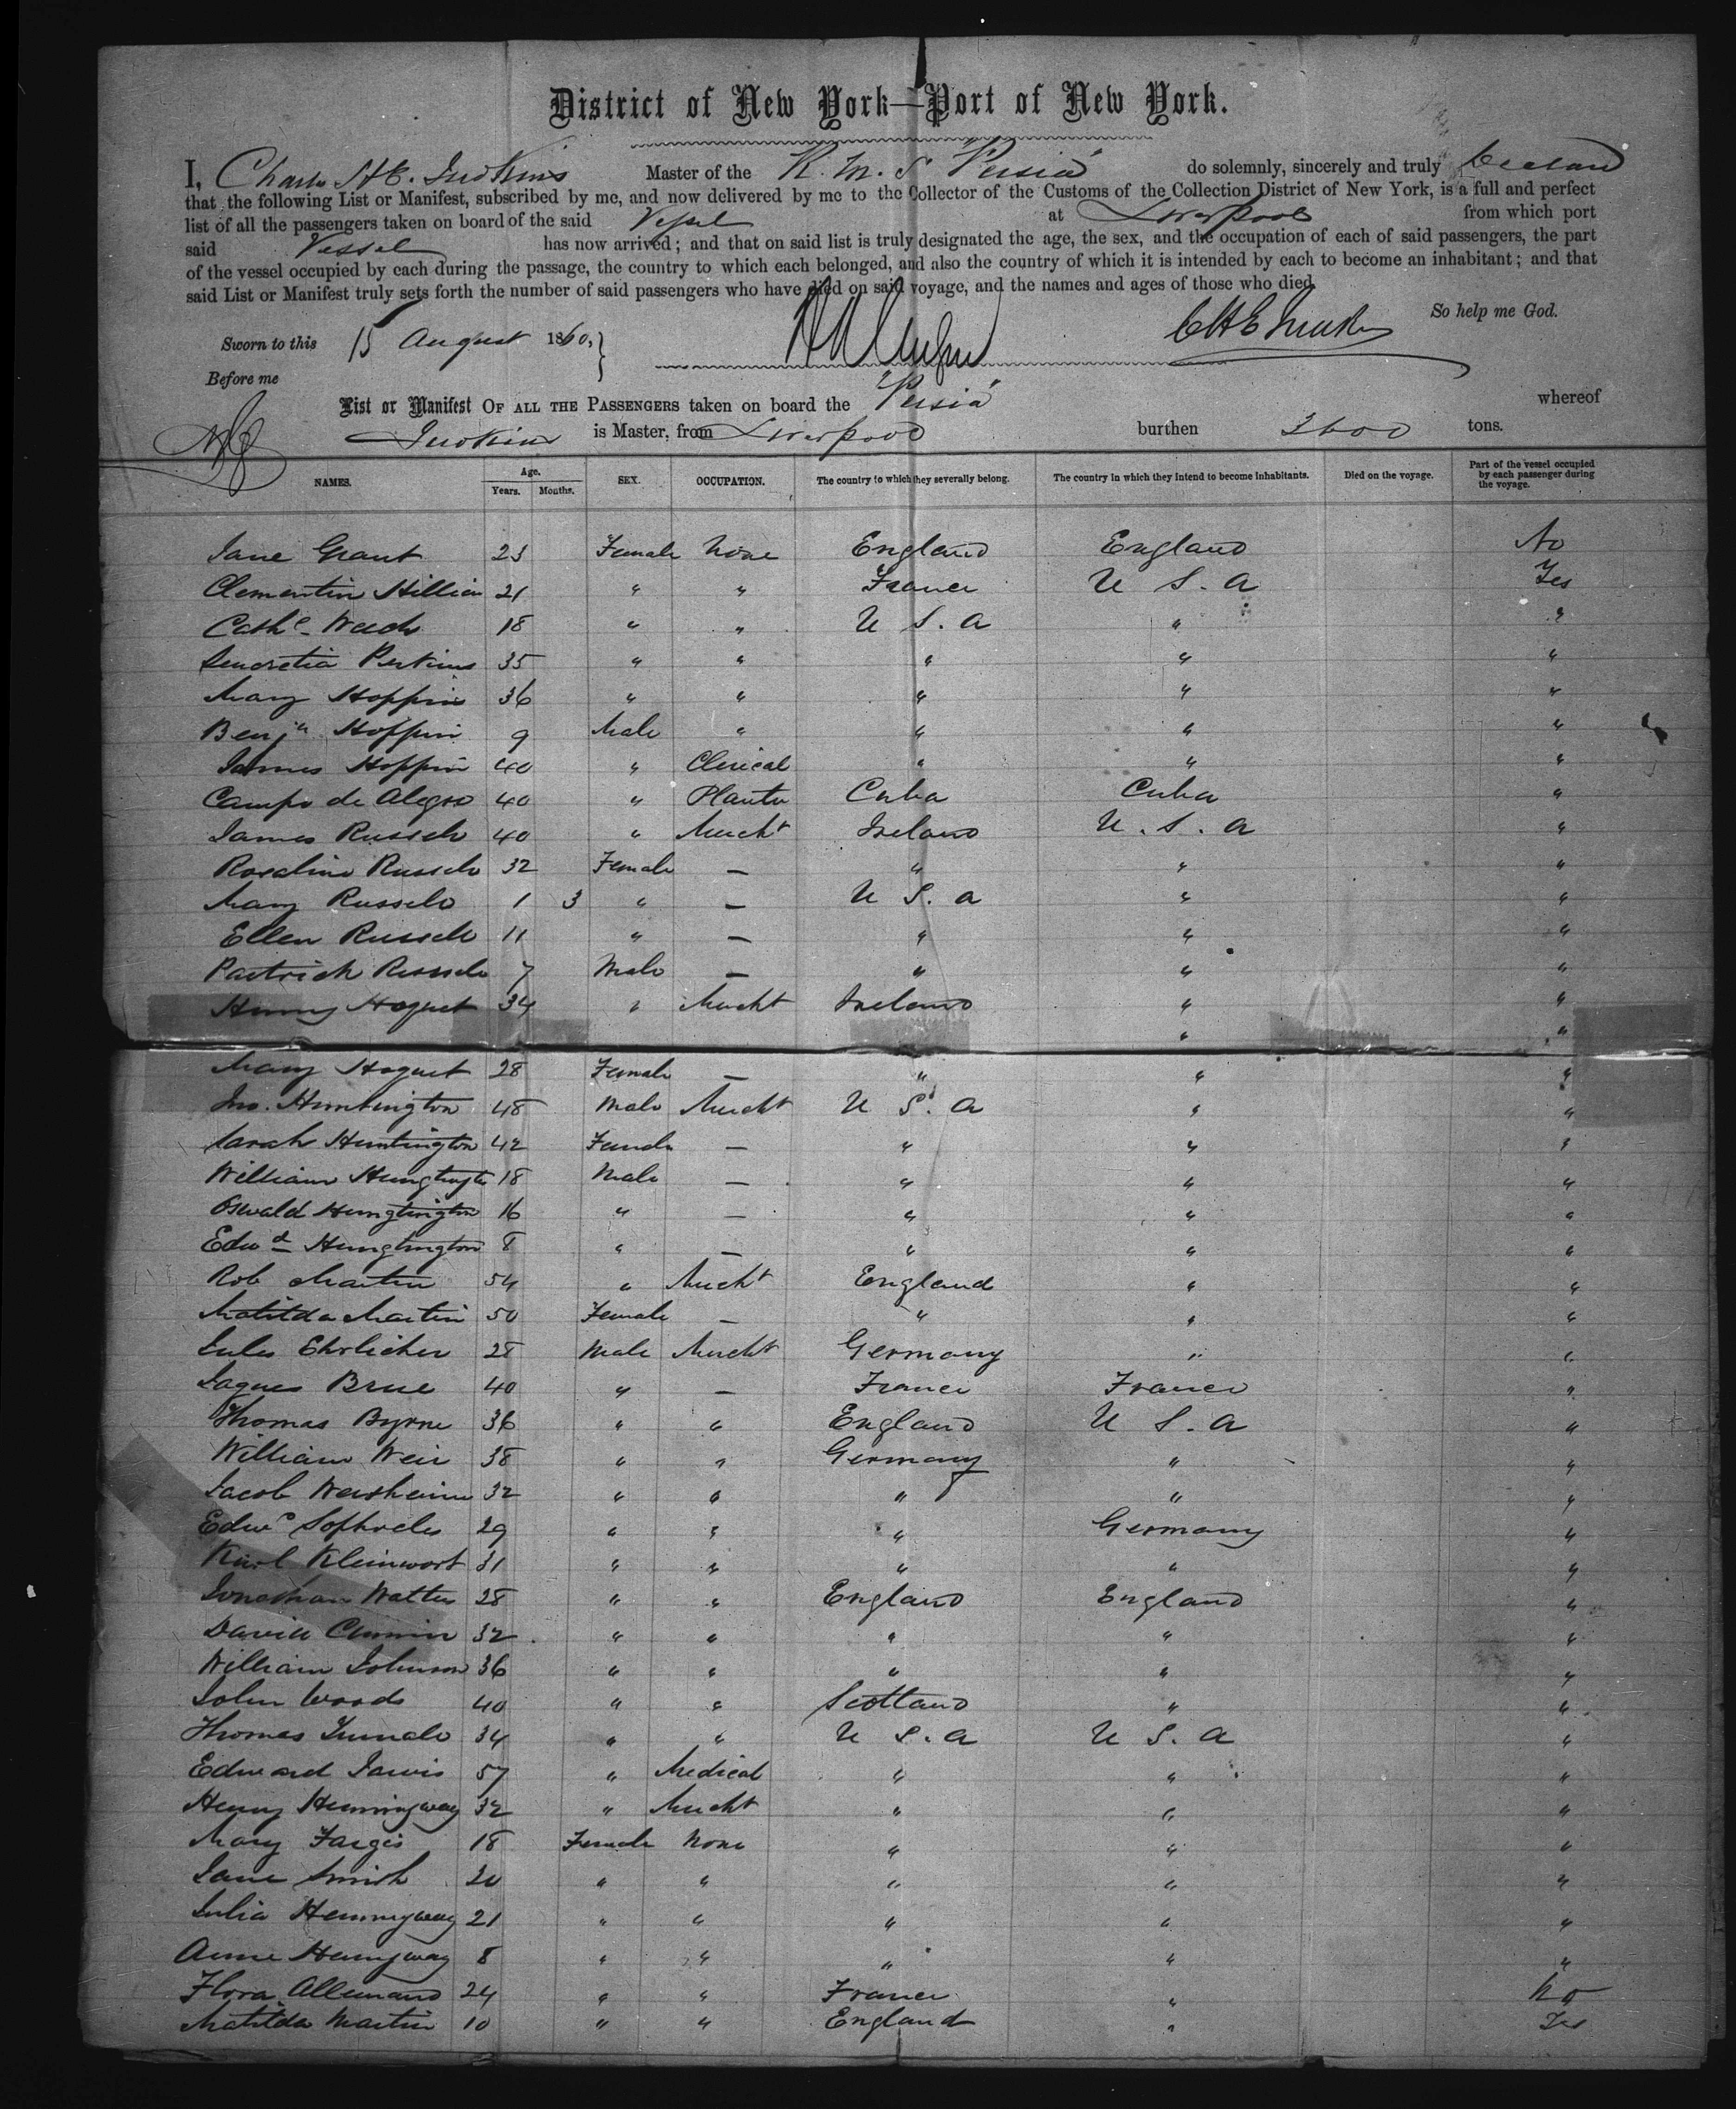 District of New York—Port of New York.
I, Charles H. E. Judkins Master of the R. M. S "Persia" do solemnly, sincerely and truly declare
that the following List or Manifest, subscribed by me, and now delivered by me to the Collector of the Customs of the Collection District of New York, is a full and perfect
list of all the passengers taken on board of the said Vessel at Liverpool from which port
said Vessel has now arrived; and that on said list is truly designated the age, the sex, and the occupation of each of said passengers, the part
of the vessel occupied by each during the passage, the country to which each belonged, and also the country of which it is intended by each to become an inhabitant; and that
said List or Manifest truly sets forth the number of said passengers who have died on said voyage, and the names and ages of those who died.
So help me God.
Sworn to this 15 August 1860, CHE Judkins
Before me
List or Manifest OF ALL THE PASSENGERS taken on board the "Persia" whereof
Judkins is Master, from Liverpool burthen 3600 tons.
NAMES. Age. Years. Months. SEX. OCCUPATION. The country to which they severally belong. The country in which they intend to become inhabitants. Died on the voyage. Part of the vessel occupied by each passenger during the voyage.
Jane Grant 23 Female None England England No
Clementin Hillier 21 " " France U S. A Yes
Cathe Welch 18 " " U S. A " "
Lucretia Perkins 35 " " " " "
Mary Hoppin 36 " " " " "
Benjn Hoppin 9 Male " " " "
James Hoppin 40 " Clerical " " "
Campo de Alegro 40 " Planter Cuba Cuba "
James Russell 40 " Mercht Ireland U. S. A "
Rosaline Russell 32 Female — " " "
Mary Russell 1 3 " — U S. A " "
Ellen Russell 11 " — " " "
Partrick Russell 7 Male — " " "
Henry Hoguet 34 " Mercht Ireland " "
" "
Mary Hoguet 28 Female — " " "
Jno. Huntington 48 Male Mercht U S. A " "
Sarah Huntington 42 Female — " " "
William Hungtington 18 Male — " " "
Oswald Hungtington 16 " — " " "
Edwd Hungtington 8 " — " " "
Rob Martin 54 " Mercht England " "
Matilda Martin 50 Female — " " "
Jules Ehrlicher 28 Male Mercht Germany " "
Jaques Brue 40 " — France France "
Thomas Byrne 36 " " England U S. A "
William Weir 38 " " Germany " "
Jacob Wersheim 32 " " " " "
Edwd Sophocles 29 " " " Germany "
Karl Kleinwort 31 " " " " "
Jonathan Watter 28 " " England England "
David Cumin 32 " " " " "
William Johnson 36 " " " " "
John Woods 40 " " Scotland " "
Thomas 34 " " U S. A U S. A "
Edward Jarvis 57 " Medical " " "
Henry Hemingway 32 " Mercht " " "
Mary Fargis 18 Female None " " "
Jane Smith 20 " " " " "
Julia Hemmyway 21 " " " " "
Anne Hemyway 8 " " " " "
Flora Allemand 24 " " France " No
Matilda Martin 10 " " England " Yes